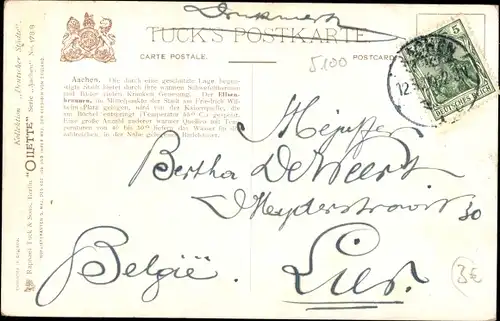 Drukwerk
TUCK'S POSTKARTE
CARTE POSTALE.
POSTCARD
5
AACHEN
12
DEUTSCHES REICH
5100
Aachen. Die durch eine geschützte Lage begün-
stigte Stadt bietet durch ihre warmen Schwefelthermen
und Bäder vielen Kranken Genesung. Der Elisen-
brunnen, im Mittelpunkte der Stadt am Friedrich Wil-
helm-Platz gelegen, wird von der Kaiserquelle, die
im Büchel entspringt (Temperatur 55° C.) gespeist.
Eine große Anzahl anderer warmer Quellen mit Tem-
peraturen von 46 bis 50° liefern das Wasser für die
in der Nähe Badehäuser.
Kollektion „Deutscher Städte".
"OILETTE" Serie „Aachen" No. 179
Raphael Tuck & Sons, Berlin.
Mejuffer
Bertha De Weert
30
België.
Lier.
3€